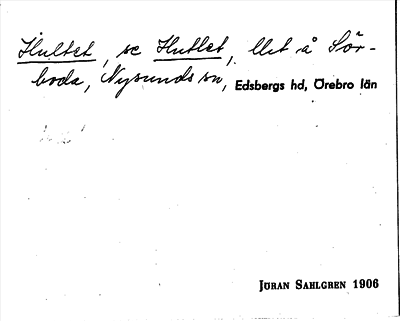 Hultet, se Huttlet, llet å Sör-
boda, Nysunds sn, Edsbergs hd, Örebro län
JÖRAN SAHLGREN 1906